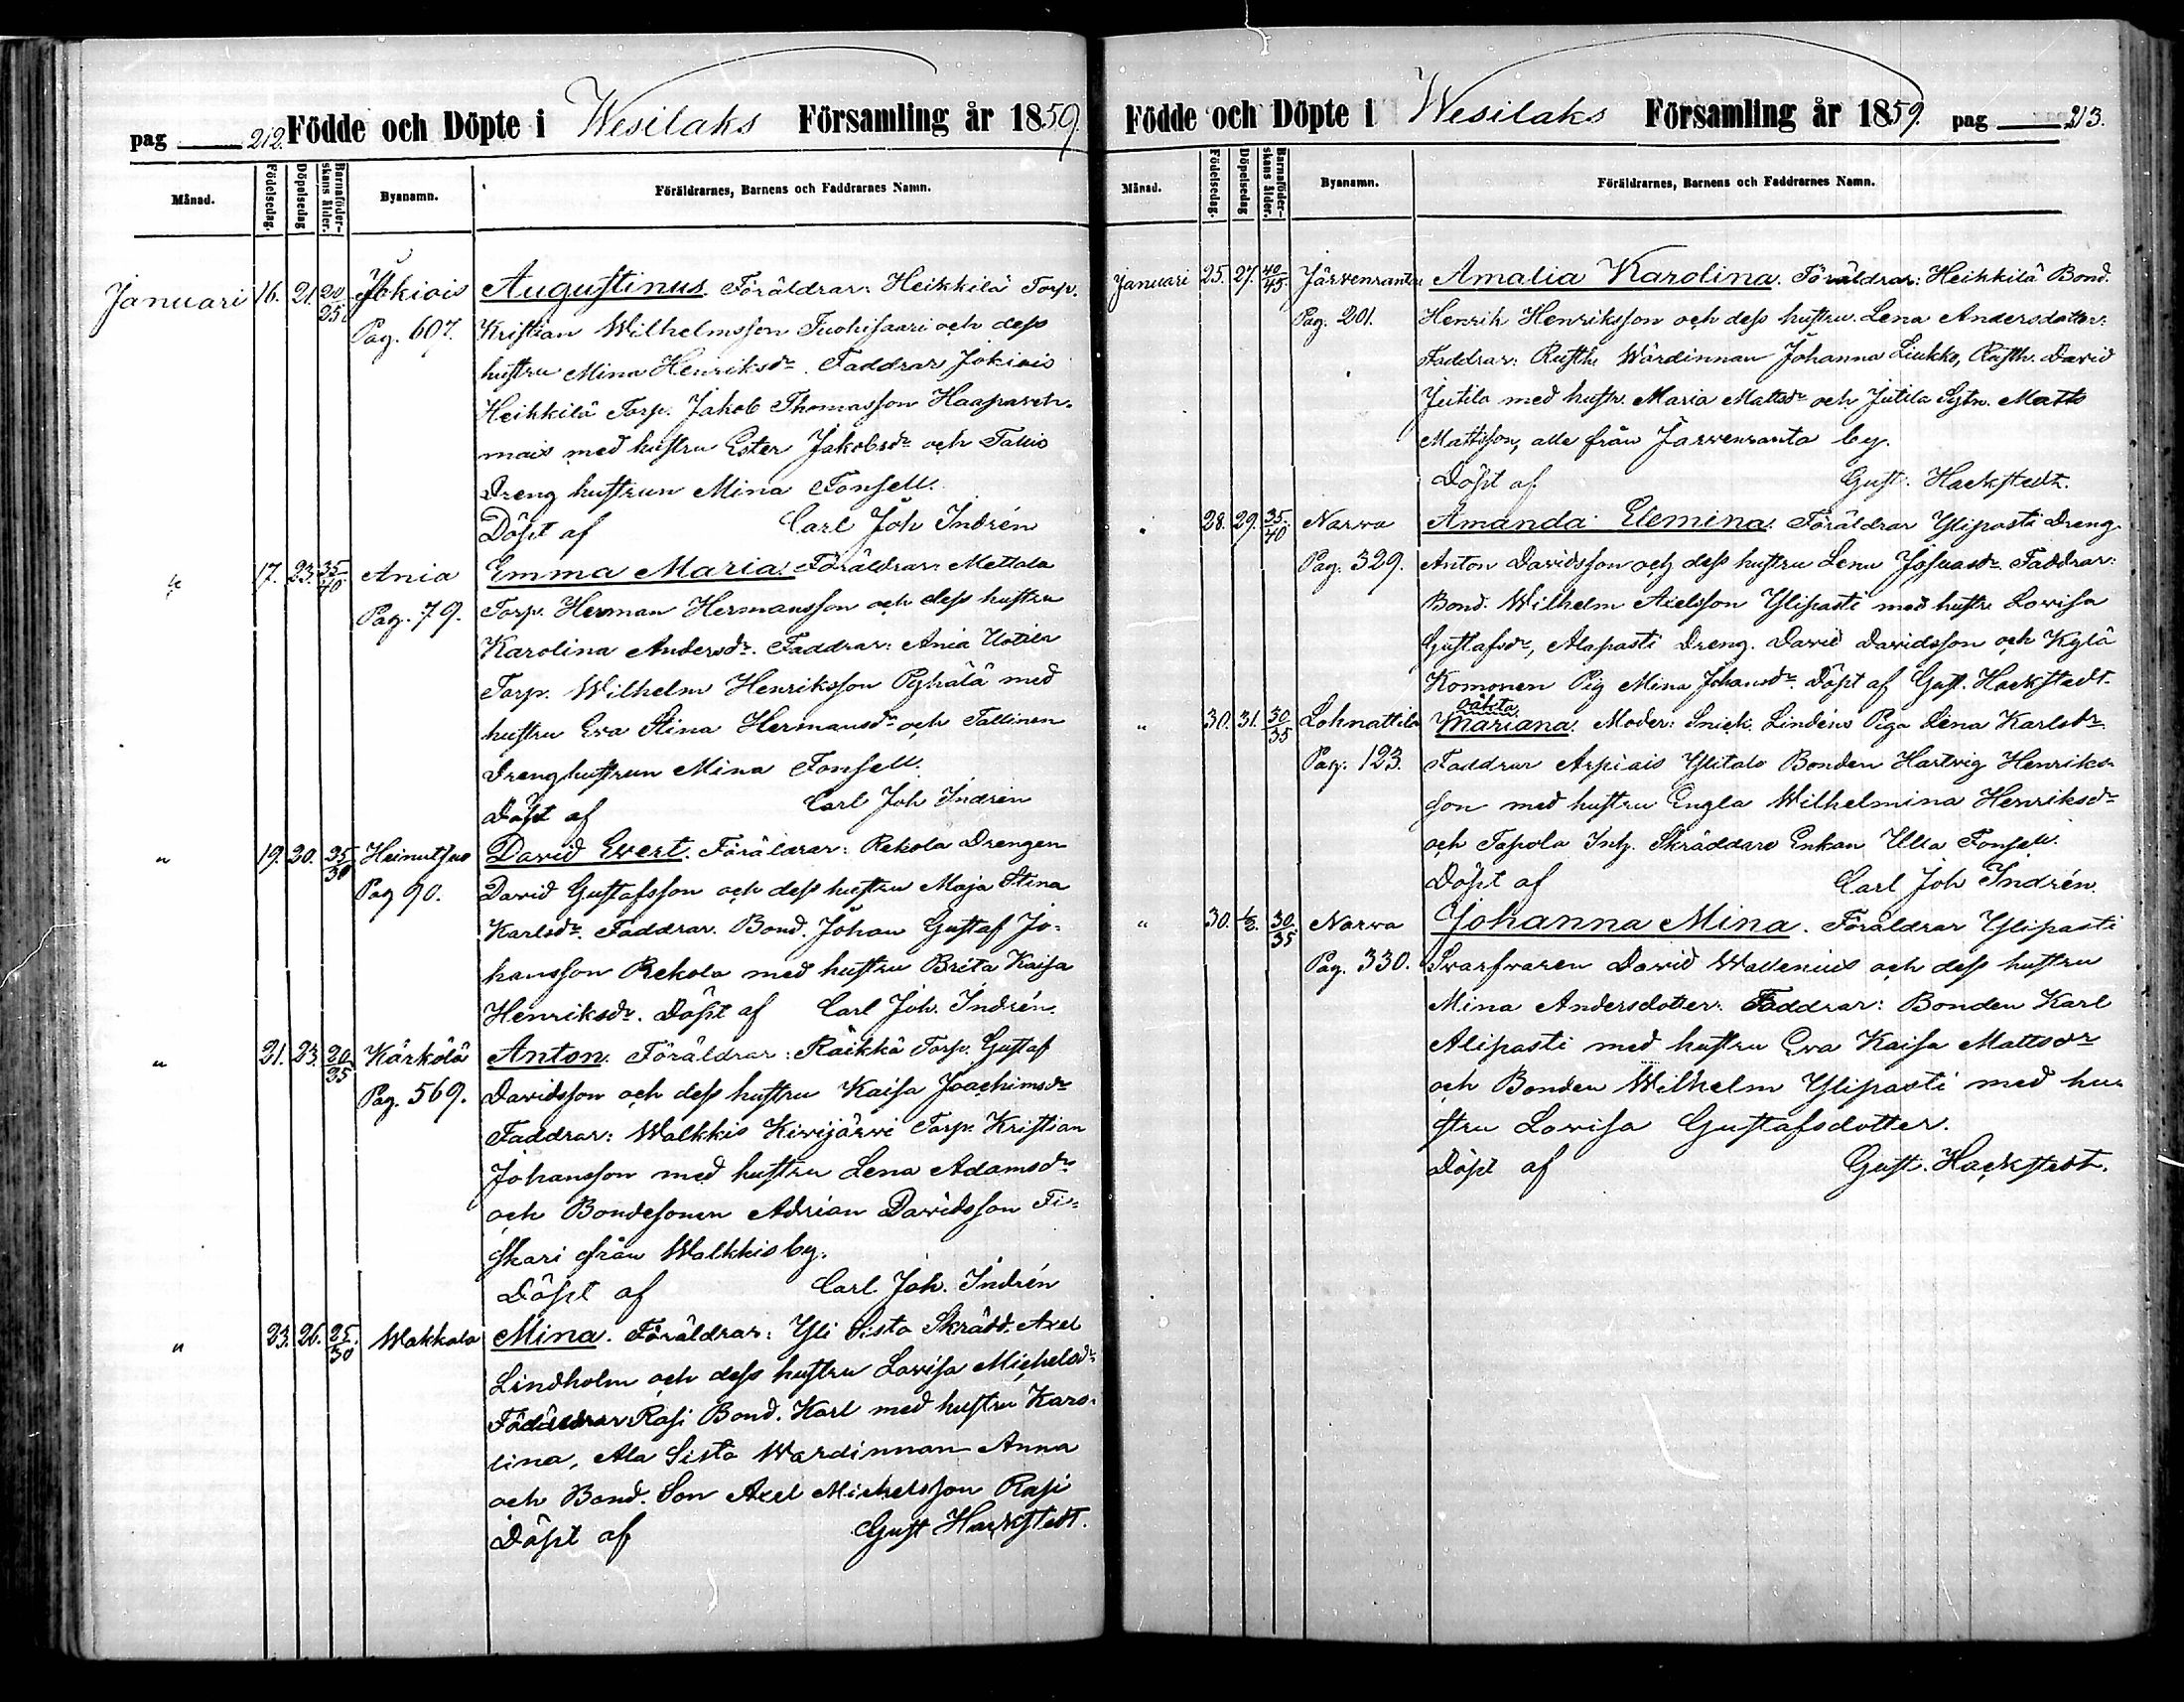 pag 212. Födde och Döpte i Wesilaks Församling år 1859.
Månad. Födelsedag. Döpelsedag Barnaföderskans ålder. Byanamn. Föräldrarnes, Barnens och Faddrarnes Namn.
Januari 16. 21 20/25 Jokiois Augustinus. Föräldrar: Heikkilä Torp.
Pag. 607. Kristian Wilhelmsson Tuohisaari och dess
hustru Mina Henriksdr. Faddrar Jokiois
Heikkilä Torp. Jakob Thomasson Haaparch-
mais med hustru Ester Jakobsdr och Tallis
Dreng hustrun Mina Fonsell.
Döpt af Carl Joh Indrén
" 17. 23. 35/40 Ania Emma Maria. Föräldrar: Mettola
Pag. 79. Torp. Herman Hermansson och dess hustru
Karolina Andersdr. Faddrar: Ania Uotila
Torp. Wilhelm Henriksson Pyhälä med
hustru Eva Stina Hermansdr och Tallinen
Drenghustrun Mina Fonsell.
Döpt af Carl Joh Indrén
" 19. 20. 25/30 Heinutsuo David Evert. Föräldrar: Rekola Drengen
Pag 90. David Gustafsson och dess hustru Maja Stina
Karlsdr. Faddrar. Bond. Johan Gustaf Jo-
hansson Rekola med hustru Brita Kaisa
Henriksdr. Döpt af Carl Joh. Indrén.
" 21. 23. 20/35 Kärkölä Anton. Föräldrar: Räikkä Torp. Gustaf
Pag. 569. Davidsson och dess hustru Kaisa Joachimsdr
Faddrar: Walkkis Kivijärvi Torp. Kristian
Johansson med hustru Lena Adamsdr
och Bondesonen Adrian Davidsson Fi-
skari från Walkkis by.
Döpt af Carl Joh. Indrén
" 23. 26. 25/30 Wakkala Mina. Föräldrar: Yli Sista Skrädd. Axel
Lindholm och dess hustru Lovisa Michelsdr
Faddrar Rasi Bond. Karl med hustru Karo-
lina, Ala Sista Wärdinnan Anna
och Bond. Son Axel Michelsson Rasi
Döpt af Gust Hackstedt.
Födde och Döpte i Wesilaks Församling år 1859. pag 213.
Månad. Födelsedag. Döpelsedag Barnaföderskans ålder. Byanamn. Föräldrarnes, Barnens och Faddrarnes Namn.
Januari 25. 27. 40/45 Järvenranta Amalia Karolina. Föräldrar: Heikkilä Bond.
Pag. 201. Henrik Henriksson och dess hustru Lena Andersdotter.
Faddrar: Rusth. Wärdinnan Johanna Liukko, Rusth. David
Jutila med hustr. Maria Mattsdr och Jutila Sytn. Matts
Mattsson, alle från Järvenranta by.
Döpt af Gust. Hackstedt.
" 28. 29. 35/40 Narva Amanda Elemina. Föräldrar Ylipasti Dreng.
Pag. 329. Anton Davidsson och dess hustru Lena Josuasdr. Faddrar:
Bond. Wilhelm Axelsson Ylipasti med hustru Lovisa
Gustafsdr, Alapasti Dreng. David Davidsson och Kylä
Komonen Pig Mina Johansdr. Döpt af Gust. Hackstedt.
oäkta
" 30. 31. 30/35 Lohnattila Mariana. Moder: Snick. Lindéns Piga Lena Karlsdr
Pag. 123. Faddrar Arpiais Ylitalo Bonden Hartvig Henriks-
son med hustru Engla Wilhelmina Henriksdr
och Tapola Inh. Skräddare Enkan Ulla Fonsell.
Döpt af Carl Joh Indrén.
" 30. 1/2. 30/35 Narva Johanna Mina. Föräldrar Ylipasti
Pag. 330. Svarfvaren David Wallenius och dess hustru
Mina Andersdotter. Faddrar: Bonden Karl
Alipasti med hustru Eva Kaisa Mattsdr
och Bonden Wilhelm Ylipasti med hu-
stru Lovisa Gustafsdotter.
Döpt af Gust. Hackstedt.